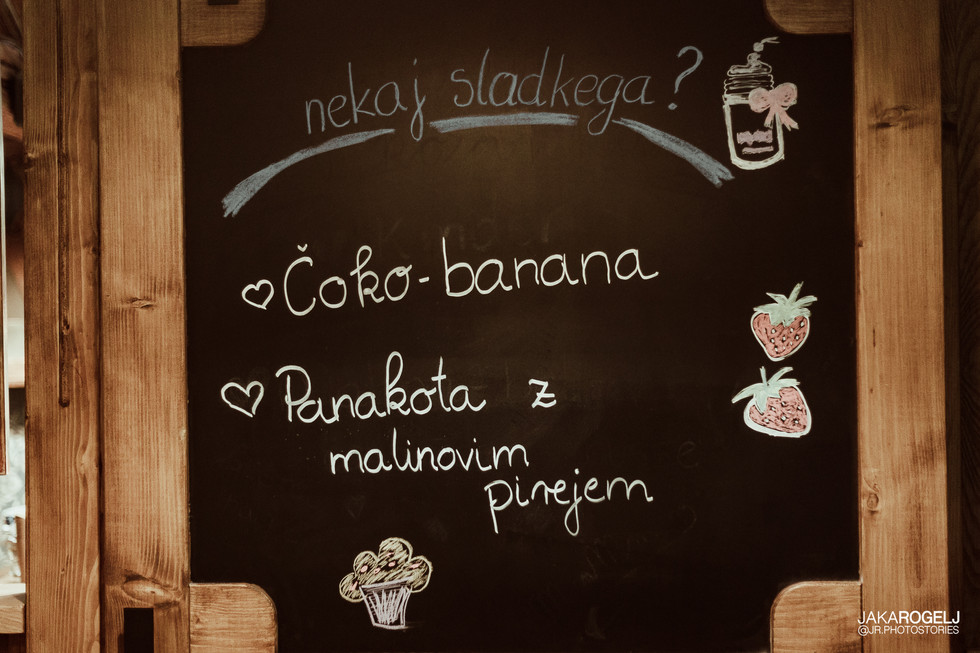 nekaj sladkega?
Čoko-banana
Panakota z
malinovim
pirejem
JAKAROGELJ
@JR.PHOTOSTORIES